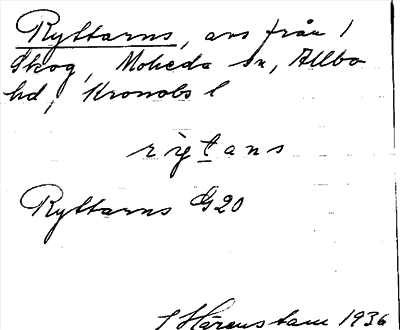 Ryttarns, avs från 1
Skog, Moheda sn, Allbo
hd, Kronobs l
rỳtans
Ryttarns G20
Härenstam 1936